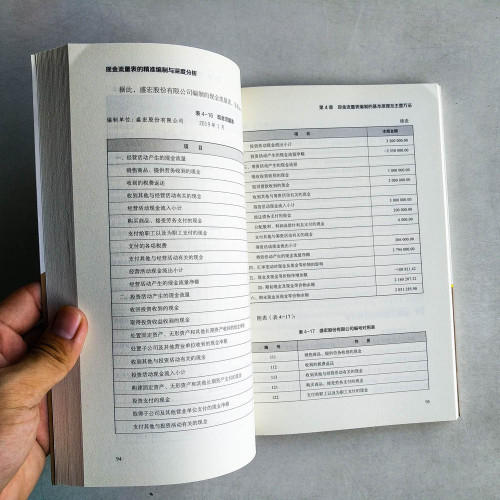 现金流量表的精准编制与深度分析
据此，盛宏股份有限公司编制的现金流量表
表4-16 现金流量表
编制单位：盛宏股份有限公司
2019年1月
项 目
一、经营活动产生的现金流量
销售商品、提供劳务收到的现金
收到的税费返还
收到其他与经营活动有关的现金
经营活动现金流入小计
购买商品、接受劳务支付的现金
支付给职工以及为职工支付的现金
支付的各项税费
支付其他与经营活动有关的现金
经营活动现金流出小计
经营活动产生的现金流量净额
二、投资活动产生的现金流量
收回投资收到的现金
取得投资收益收到的现金
处置固定资产、无形资产和其他长期资产收回的现金净额
处置子公司及其他营业单位收到的现金净额
收到其他与投资活动有关的现金
投资活动现金流入小计
购建固定资产、无形资产和其他长期资产支付的现金
投资支付的现金
取得子公司及其他营业单位支付的现金净额
支付其他与投资活动有关的现金
94
第4章 现金流量表编制的基本原理及主要方法
续表
项 目 本期金额
投资活动现金流出小计
投资活动产生的现金流量净额
吸收投资收到的现金
取得借款收到的现金
收到其他与筹资活动有关的现金
筹资活动现金流入小计
偿还债务支付的现金
分配股利、利润或偿付利息支付的现金
支付其他与筹资活动有关的现金
筹资活动现金流出小计
筹资活动产生的现金流量净额
四、汇率变动对现金及现金等价物的影响
五、现金及现金等价物净增加额
加：期初现金及现金等价物余额
六、期末现金及现金等价物余额
附表（表4-17）：
表4-17 盛宏股份有限公司编号对照表
编 号
111 销售商品、提供劳务收到的现金
112 收到的税费返还
113 收到其他与经营活动有关的现金
121 购买商品、接受劳务支付的现金
122 支付给职工以及为职工支付的现金
95